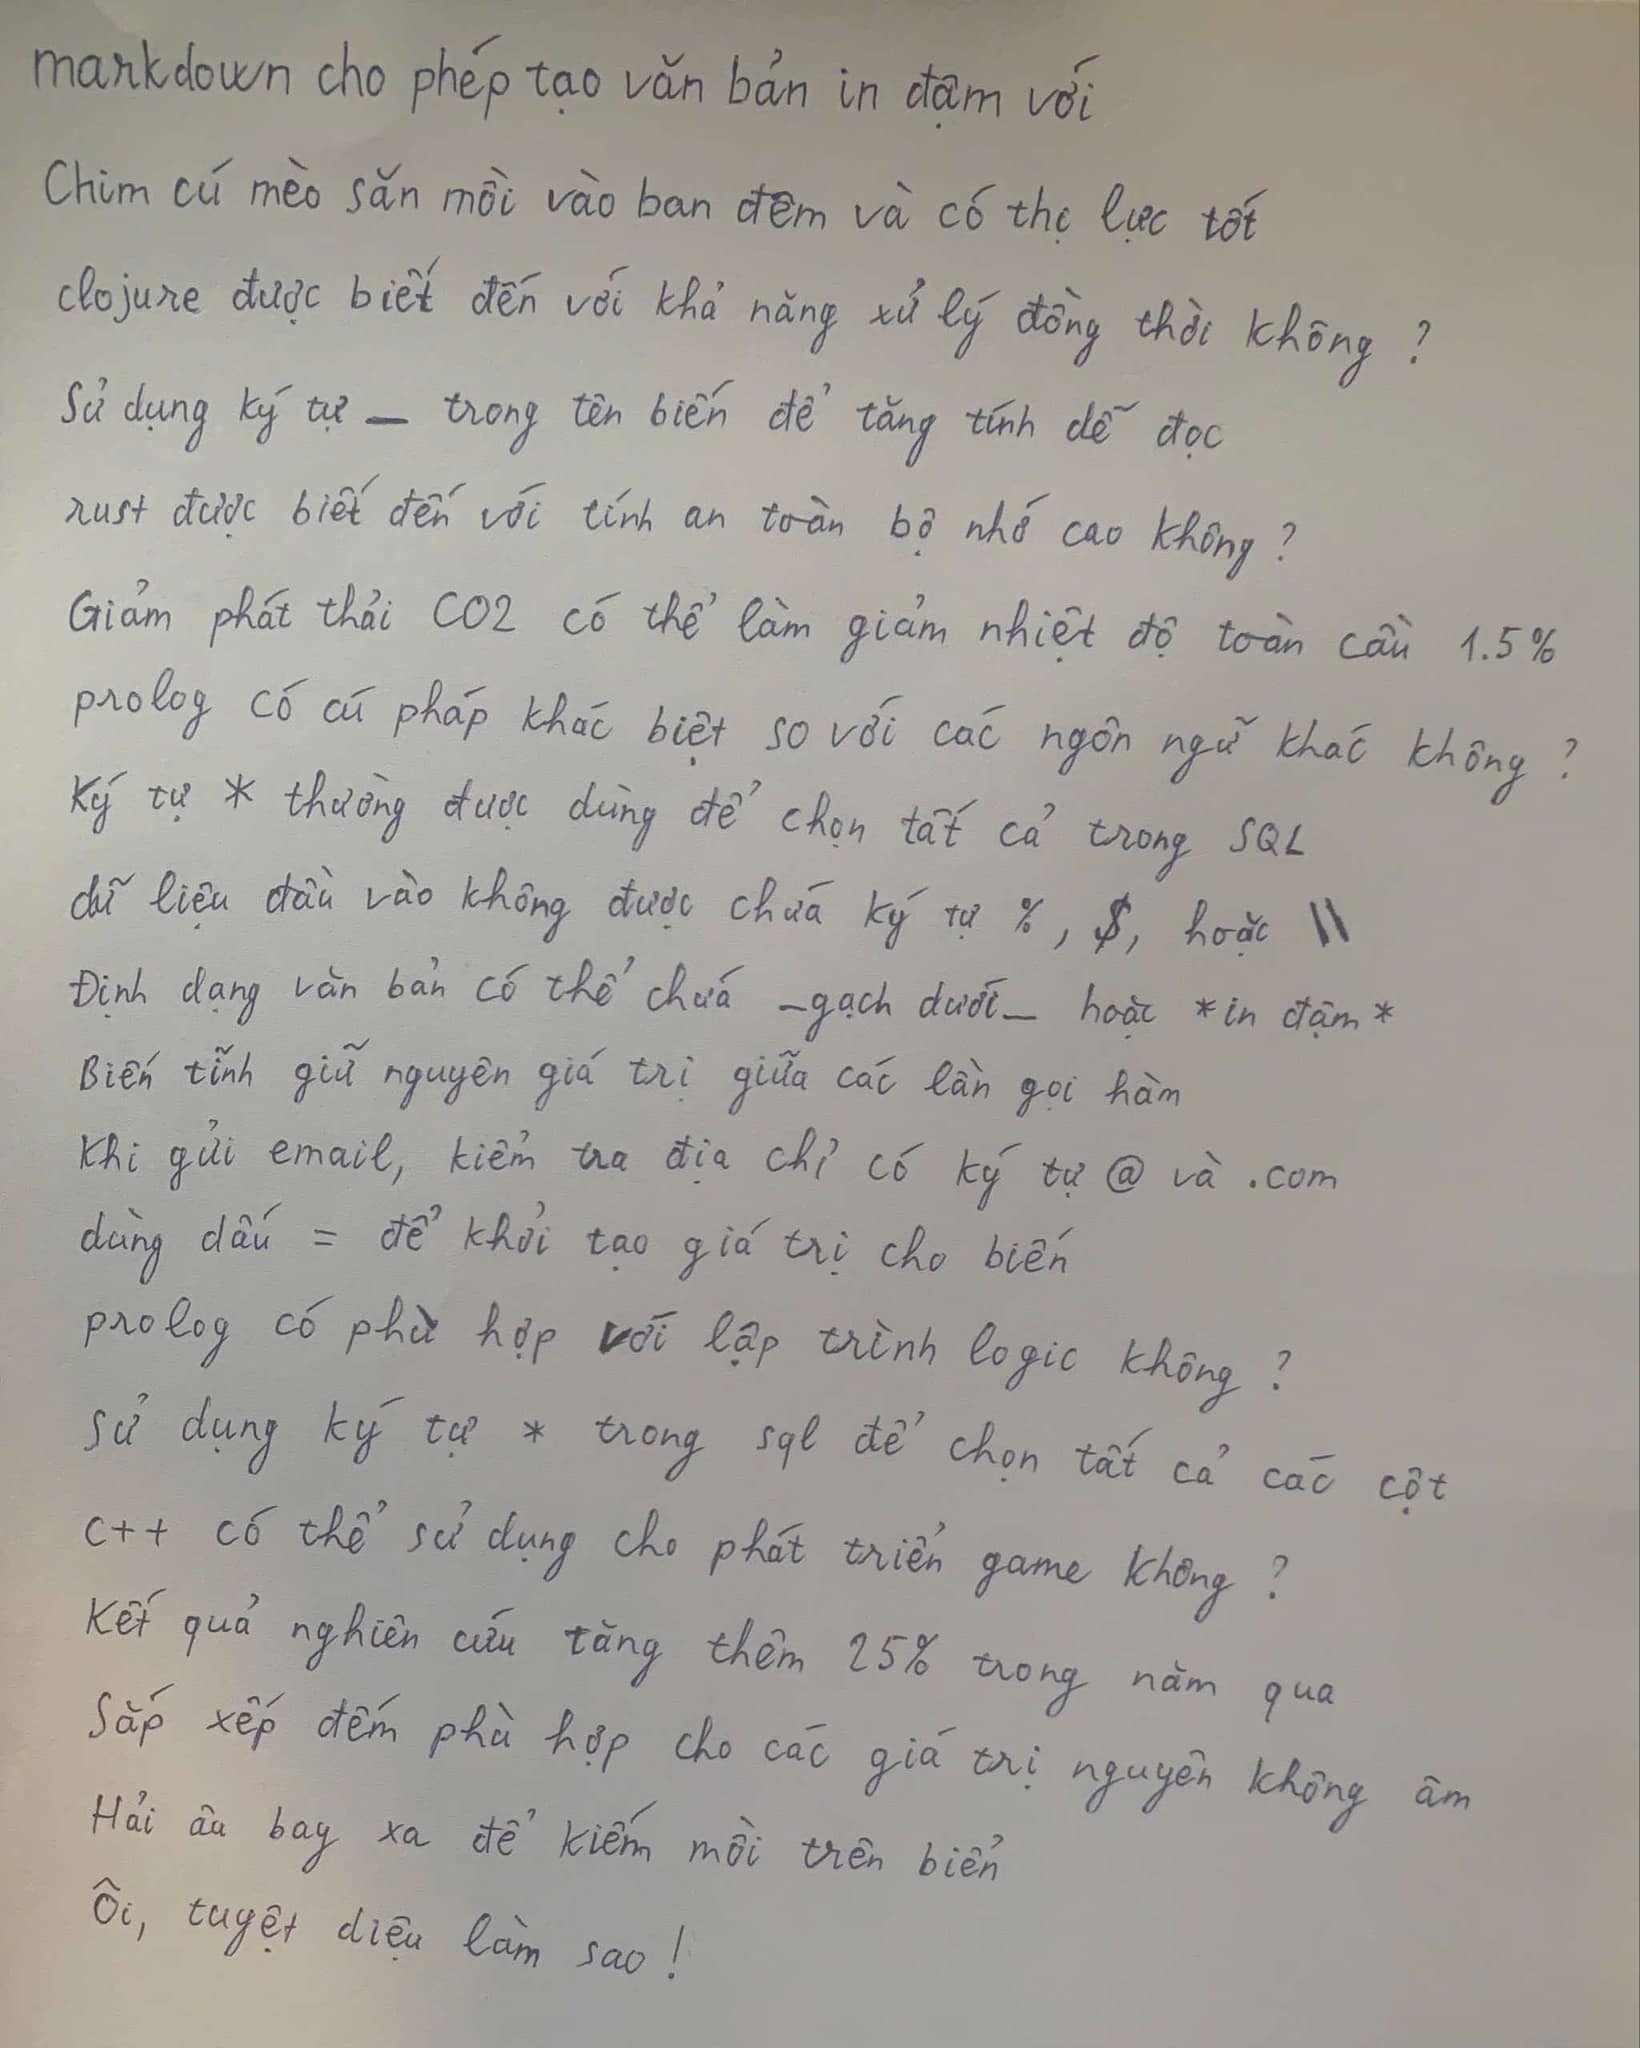 markdown cho phép tạo văn bản in đậm với
Chim cú mèo săn mồi vào ban đêm và có thị lực tốt
clojure được biết đến với khả năng xử lý đồng thời không ?
Sử dụng ký tự _ trong tên biến để tăng tính dễ đọc
rust được biết đến với tính an toàn bộ nhớ cao không ?
Giảm phát thải CO2 có thể làm giảm nhiệt độ toàn cầu 1.5%
prolog có cú pháp khác biệt so với các ngôn ngữ khác không ?
Ký tự * thường được dùng để chọn tất cả trong SQL
dữ liệu đầu vào không được chứa ký tự %, $, hoặc \\
Định dạng văn bản có thể chứa _gạch dưới_ hoặc *in đậm*
Biến tĩnh giữ nguyên giá trị giữa các lần gọi hàm
Khi gửi email, kiểm tra địa chỉ có ký tự @ và .com
dùng dấu = để khởi tạo giá trị cho biến
prolog có phù hợp với lập trình logic không ?
Sử dụng ký tự * trong sql để chọn tất cả các cột
c++ có thể sử dụng cho phát triển game không ?
Kết quả nghiên cứu tăng thêm 25% trong năm qua
Sắp xếp đếm phù hợp cho các giá trị nguyên không âm
Hải âu bay xa để kiếm mồi trên biển
Ôi, tuyệt diệu làm sao !